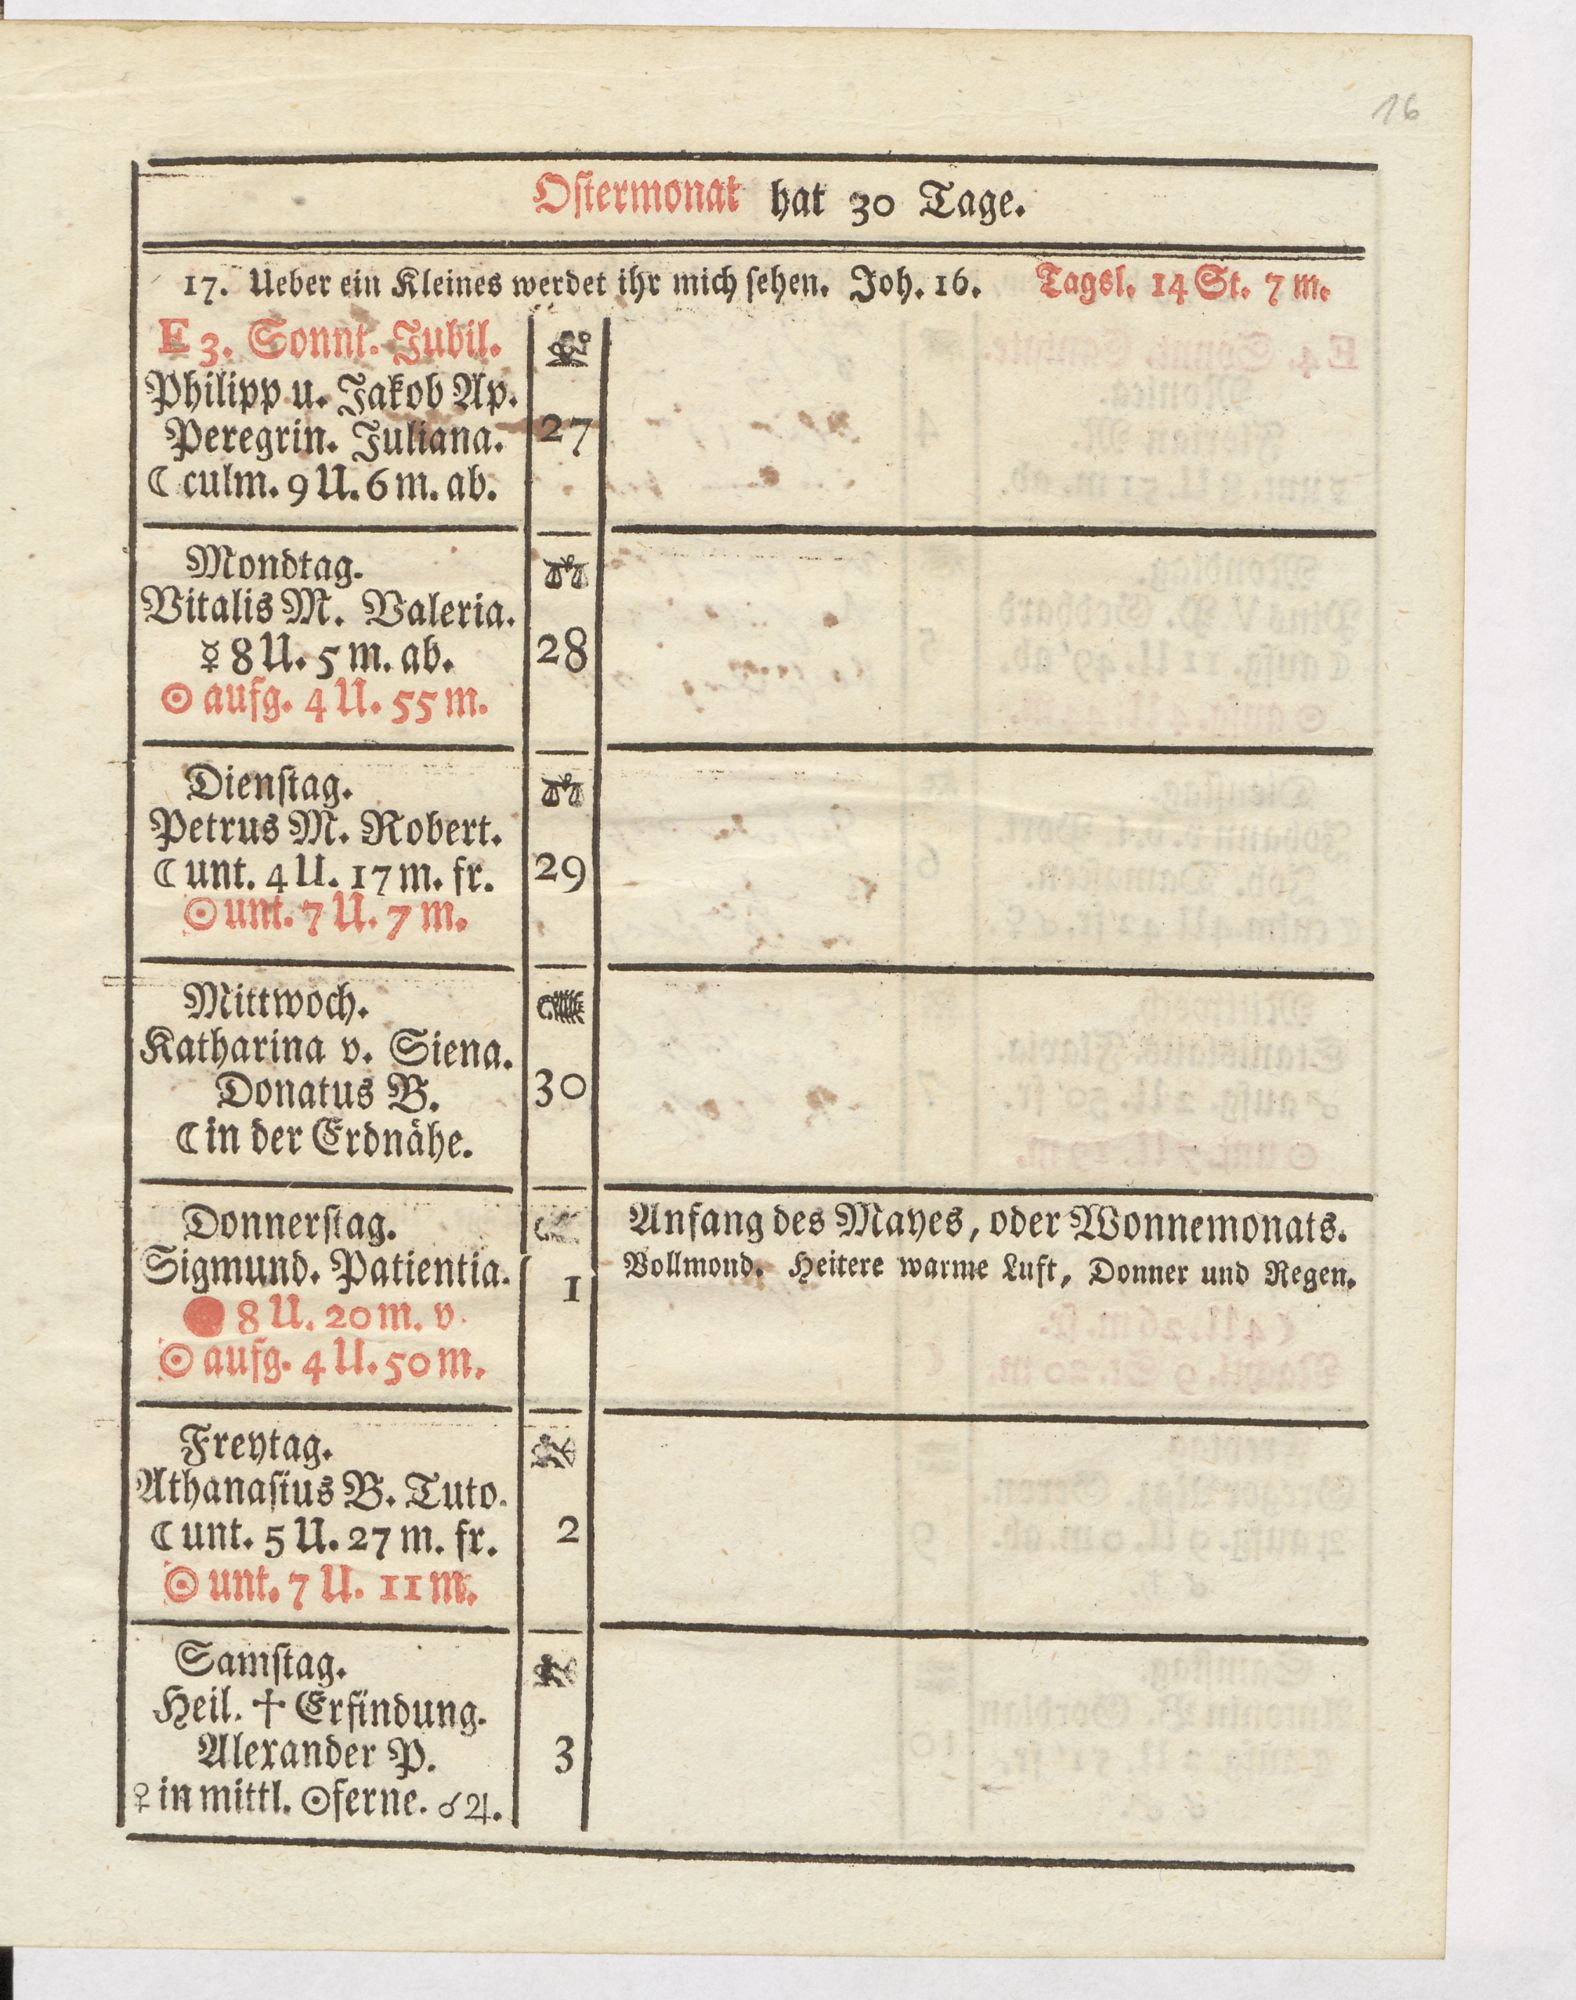 16
Ostermonat hat 30 Tage.
17. Ueber ein Kleines werdet ihr mich sehen. Joh. 16. Tagsl. 14 St. 7 m.
E 3. Sonnt. Jubil.
Philipp u. Jakob Ap.
Peregrin. Juliana.
☾ culm. 9 U. 6 m. ab.
27
Mondtag.
Vitalis M. Valeria.
☿ 8 U. 5 m. ab.
☉ aufg. 4 U. 55 m.
28
Dienstag.
Petrus M. Robert.
☾ unt. 4 U. 17 m. fr.
☉ unt. 7 U. 7 m.
29
Mittwoch.
Katharina v. Siena.
Donatus B.
☾ in der Erdnähe.
30
Donnerstag.
Sigmund. Patientia.
● 8 U. 20 m. v.
☉ aufg. 4 U. 50 m.
1
Anfang des Mayes, oder Wonnemonats.
Vollmond. Heitere warme Luft, Donner und Regen.
Freytag.
Athanasius B. Tuto.
☾ unt. 5 U. 27 m. fr.
☉ unt. 7 U. 11 m.
2
Samstag.
Heil. † Erfindung.
Alexander P.
♀ in mittl. ☉ferne. ☌ ♃.
3